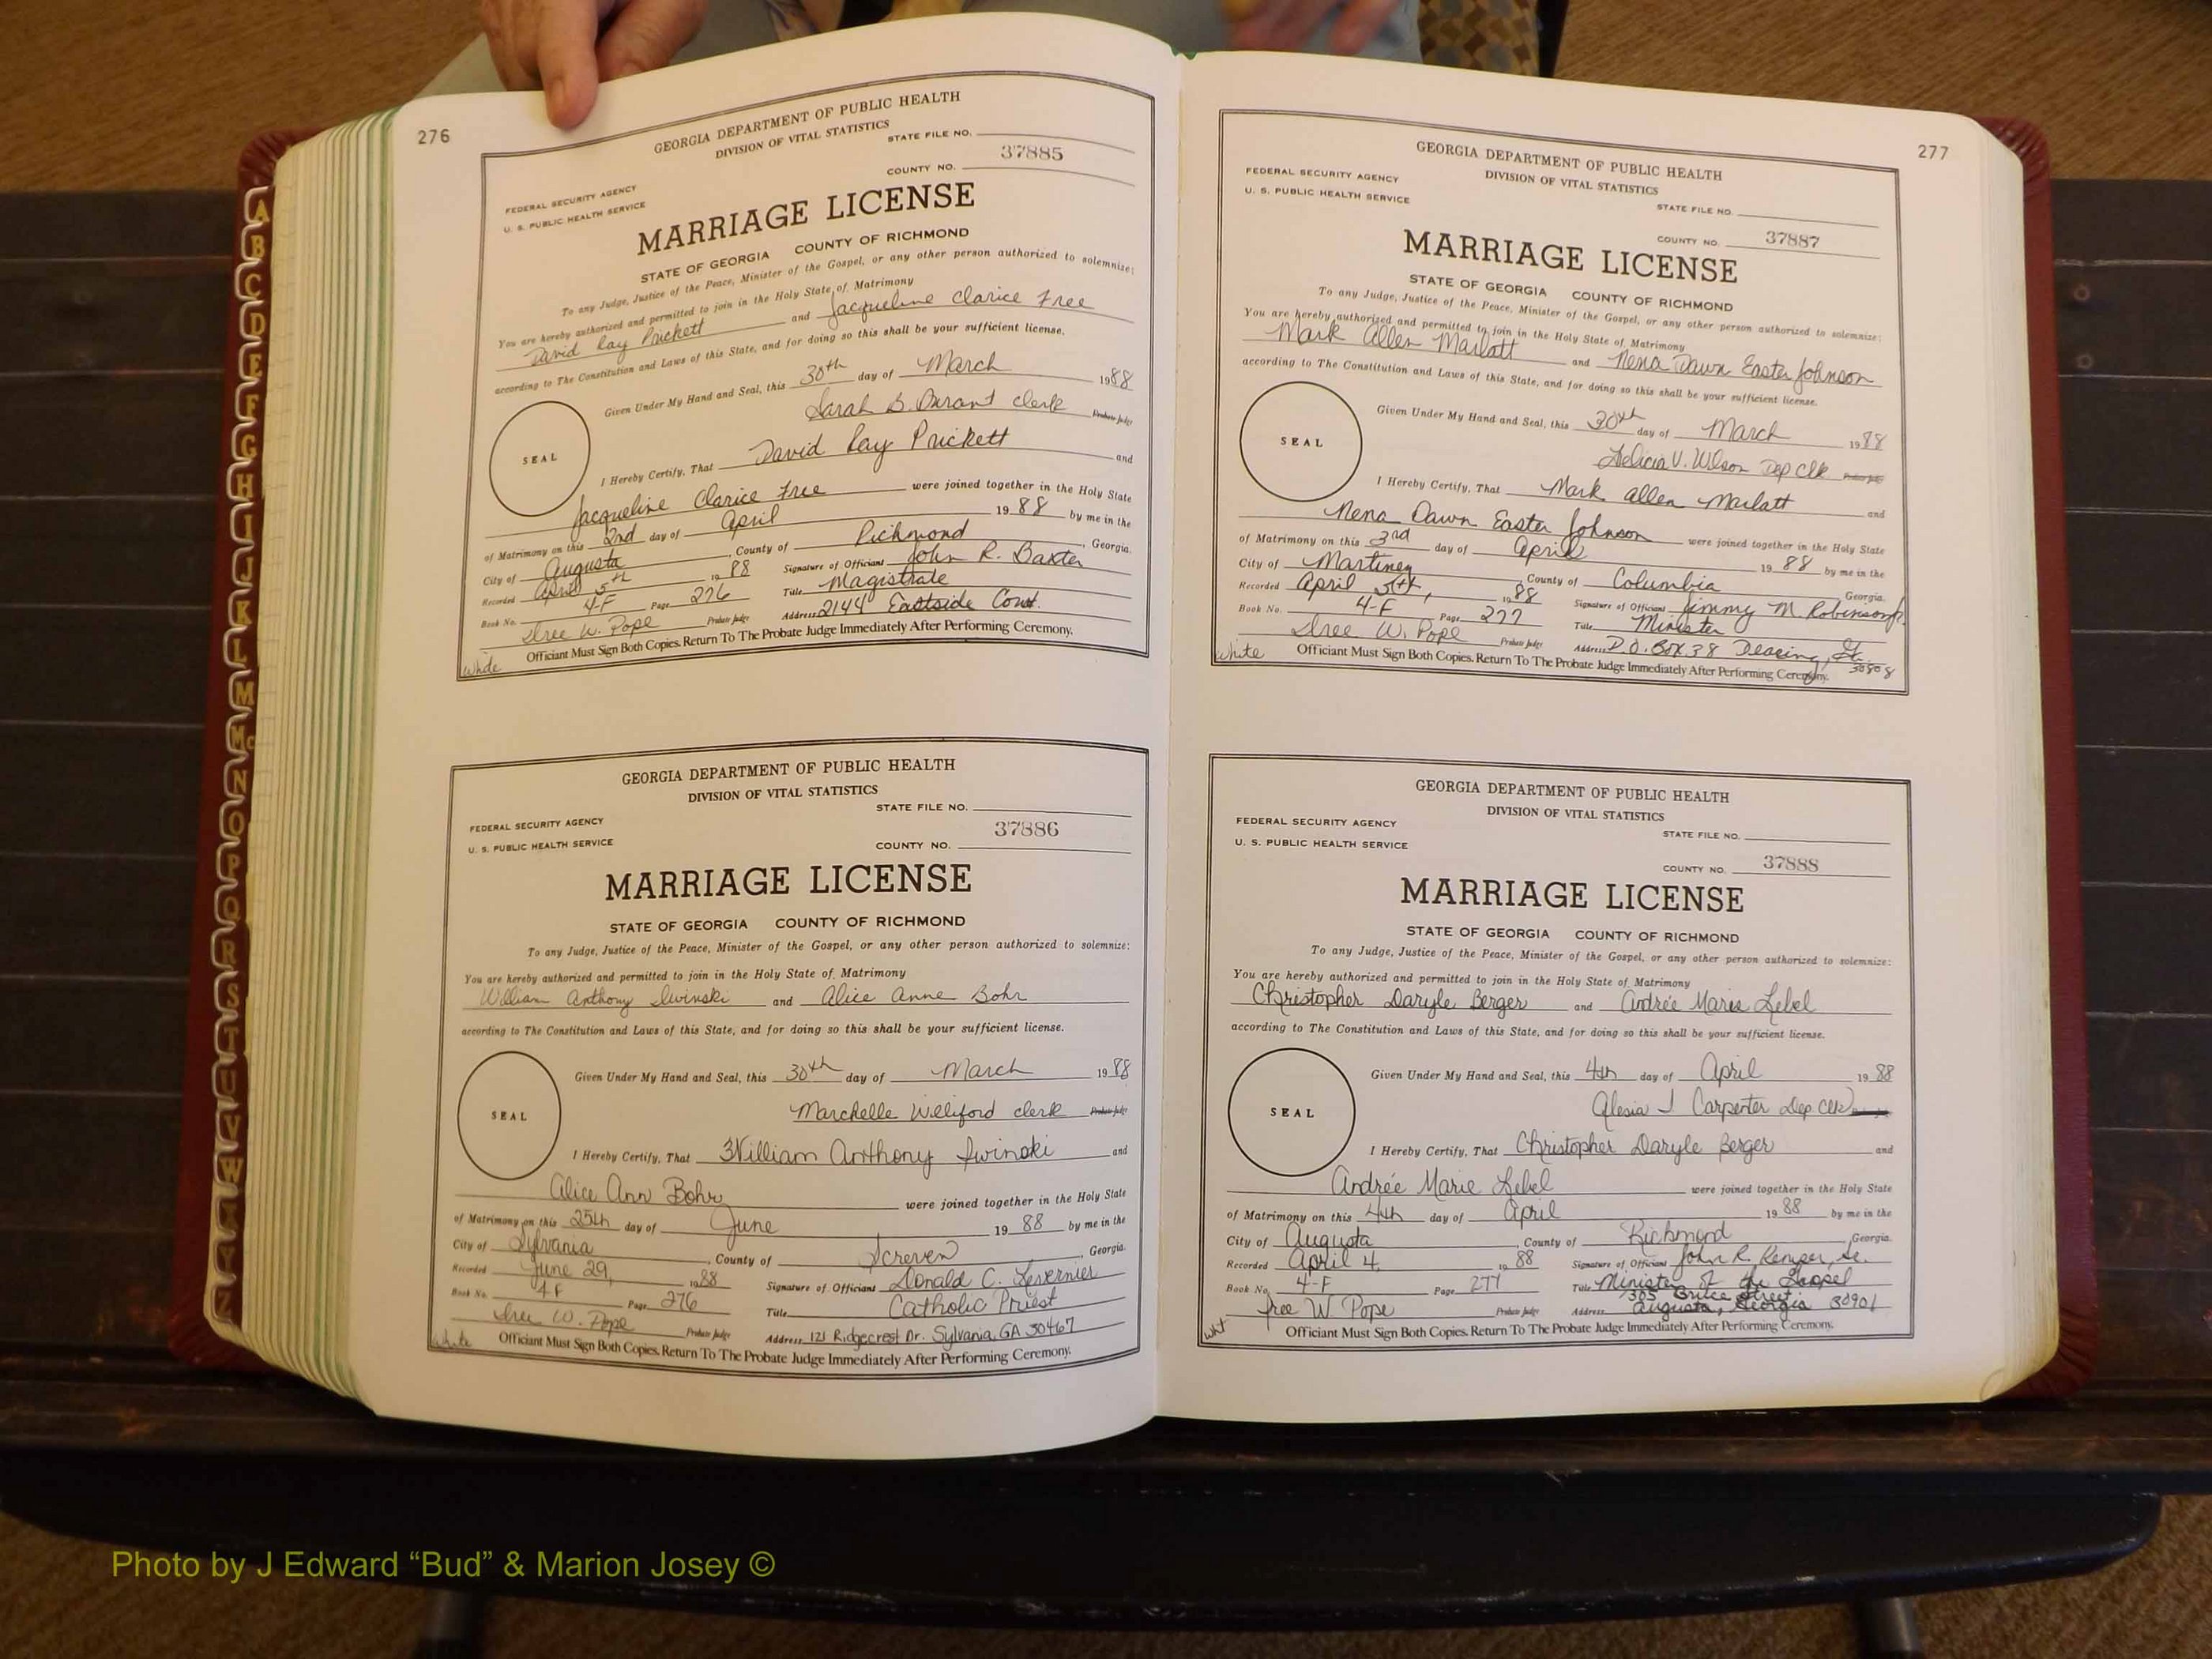 276
GEORGIA DEPARTMENT OF PUBLIC HEALTH
DIVISION OF VITAL STATISTICS
STATE FILE NO.
37885
COUNTY NO.
FEDERAL SECURITY AGENCY
U. S. PUBLIC HEALTH SERVICE
MARRIAGE LICENSE
STATE OF GEORGIA COUNTY OF RICHMOND
To any Judge, Justice of the Peace, Minister of the Gospel, or any other person authorized to solemnize:
You are hereby authorized and permitted to join in the Holy State of Matrimony
David Ray Prickett and Jacqueline Clarice Free
according to The Constitution and Laws of this State, and for doing so this shall be your sufficient license.
Given Under My Hand and Seal, this 30th day of March 1988
Sarah B. Durant clerk Probate Judge
SEAL
I Hereby Certify, That David Ray Prickett and
Jacqueline Clarice Free were joined together in the Holy State
of Matrimony on this 2nd day of April 1988 by me in the
City of Augusta, County of Richmond, Georgia.
Recorded April 5th 1988 Signature of Officiant John R. Baxter
Book No. 4-F Page 276 Title Magistrate
Sree W. Pope Probate Judge Address 2144 Eastside Court.
Officiant Must Sign Both Copies. Return To The Probate Judge Immediately After Performing Ceremony.
White
GEORGIA DEPARTMENT OF PUBLIC HEALTH
DIVISION OF VITAL STATISTICS
STATE FILE NO.
37886
FEDERAL SECURITY AGENCY
U. S. PUBLIC HEALTH SERVICE
COUNTY NO.
MARRIAGE LICENSE
STATE OF GEORGIA COUNTY OF RICHMOND
To any Judge, Justice of the Peace, Minister of the Gospel, or any other person authorized to solemnize:
You are hereby authorized and permitted to join in the Holy State of Matrimony
William Anthony Iwinski and Alice Anne Bohr
according to The Constitution and Laws of this State, and for doing so this shall be your sufficient license.
Given Under My Hand and Seal, this 30th day of March 1988
Marchelle Williford clerk Probate Judge
SEAL
I Hereby Certify, That William Anthony Iwinski and
Alice Ann Bohr were joined together in the Holy State
of Matrimony on this 25th day of June 1988 by me in the
City of Sylvania, County of Screven, Georgia.
Recorded June 29, 1988 Signature of Officiant Donald C. Levernier
Book No. 4F Page 276 Title Catholic Priest
Sree W. Pope Probate Judge Address 121 Ridgecrest Dr. Sylvania, GA 30467
White Officiant Must Sign Both Copies. Return To The Probate Judge Immediately After Performing Ceremony.
277
GEORGIA DEPARTMENT OF PUBLIC HEALTH
DIVISION OF VITAL STATISTICS
FEDERAL SECURITY AGENCY
U. S. PUBLIC HEALTH SERVICE
STATE FILE NO.
COUNTY NO. 37887
MARRIAGE LICENSE
STATE OF GEORGIA COUNTY OF RICHMOND
To any Judge, Justice of the Peace, Minister of the Gospel, or any other person authorized to solemnize:
You are hereby authorized and permitted to join in the Holy State of Matrimony
Mark Allen Marlatt and Nena Dawn Easter Johnson
according to The Constitution and Laws of this State, and for doing so this shall be your sufficient license.
Given Under My Hand and Seal, this 30th day of March 1988
Felicia V. Wilson Dep Clk Probate Judge
SEAL
I Hereby Certify, That Mark Allen Marlatt and
Nena Dawn Easter Johnson were joined together in the Holy State
of Matrimony on this 3rd day of April 1988 by me in the
City of Martinez, County of Columbia Georgia.
Recorded April 5th, 1988 Signature of Officiant Jimmy M. Robinson Jr.
Book No. 4-F Page 277 Title Minister
Sree W. Pope Probate Judge Address P.O. Box 38 Dearing, Ga. 30808
White Officiant Must Sign Both Copies. Return To The Probate Judge Immediately After Performing Ceremony.
GEORGIA DEPARTMENT OF PUBLIC HEALTH
DIVISION OF VITAL STATISTICS
FEDERAL SECURITY AGENCY
U. S. PUBLIC HEALTH SERVICE
STATE FILE NO.
COUNTY NO. 37888
MARRIAGE LICENSE
STATE OF GEORGIA COUNTY OF RICHMOND
To any Judge, Justice of the Peace, Minister of the Gospel, or any other person authorized to solemnize:
You are hereby authorized and permitted to join in the Holy State of Matrimony
Christopher Daryle Berger and Andrée Marie Lebel
according to The Constitution and Laws of this State, and for doing so this shall be your sufficient license.
Given Under My Hand and Seal, this 4th day of April 1988
Alesia J Carpenter Dep Clk
SEAL
I Hereby Certify, That Christopher Daryle Berger and
Andrée Marie Lebel were joined together in the Holy State
of Matrimony on this 4th day of April 1988 by me in the
City of Augusta, County of Richmond Georgia.
Recorded April 4, 1988 Signature of Officiant John R. Sr.
Book No. 4-F Page 277 Title Minister of the Gospel
Sree W Pope Probate Judge Address 1305 Street Augusta, Georgia 30901
wht Officiant Must Sign Both Copies. Return To The Probate Judge Immediately After Performing Ceremony.
A
B
C
D
E
F
G
H
I
J
K
L
M
Mc
N
O
P
Q
R
S
T
U
V
W
X
Y
Z
Photo by J Edward “Bud” & Marion Josey ©